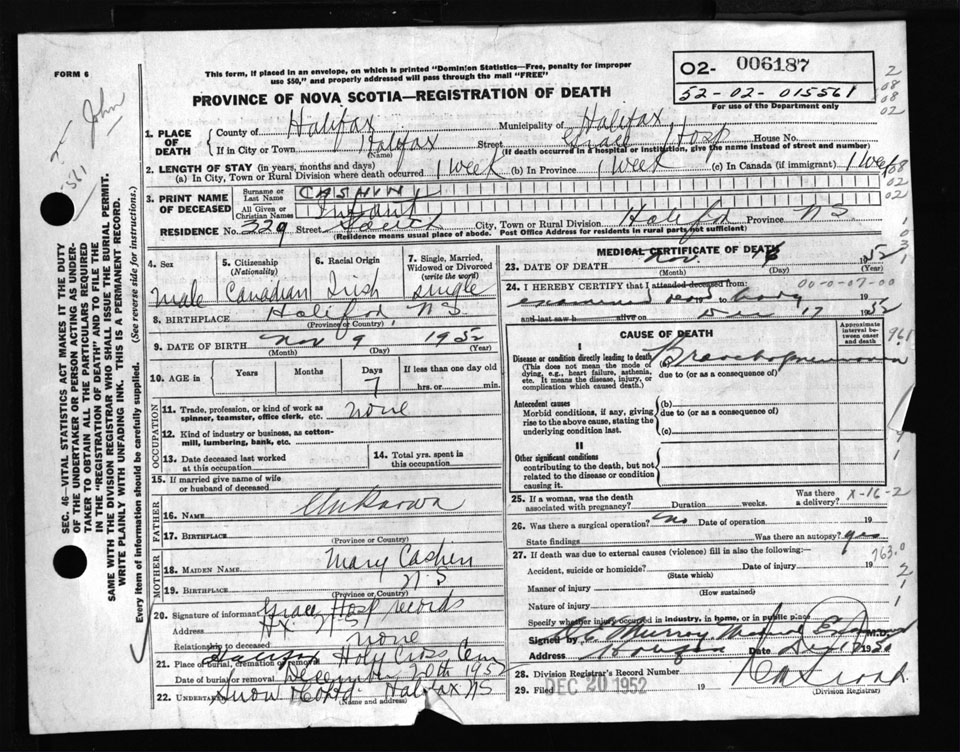 FORM 6
This form, if placed in an envelope, on which is printed "Dominion Statistics—Free, penalty for improper
use $50," and properly addressed will pass through the mail "FREE"
PROVINCE OF NOVA SCOTIA—REGISTRATION OF DEATH
02- 006187
52-02-015561
For use of the Department only
2
08
08
02
John
561
1. PLACE OF DEATH
County of Halifax Municipality of Halifax
If in City or Town Halifax Street Grace Hosp House No.
(Name) (If death occurred in a hospital or institution, give the name instead of street and number)
2. LENGTH OF STAY (in years, months and days)
(a) In City, Town or Rural Division where death occurred 1 week (b) in Province 1 week (c) in Canada (if immigrant) 1 week
3. PRINT NAME OF DECEASED
Surname or Last Name
All Given or Christian Names Infant
RESIDENCE No. 329 Street City, Town or Rural Division Halifax Province N S.
(Residence means usual place of abode. Post Office Address for residents in rural parts not sufficient)
4. Sex male
5. Citizenship (Nationality) Canadian
6. Racial Origin Irish
7. Single, Married, Widowed or Divorced (write the word) single
8. BIRTHPLACE Halifax N S.
(Province or Country)
9. DATE OF BIRTH Nov 9 1952
(Month) (Day) (Year)
10. AGE in Years Months Days 7 If less than one day old
hrs. or min.
OCCUPATION
11. Trade, profession, or kind of work as spinner, teamster, office clerk, etc. none
12. Kind of industry or business, as cotton-mill, lumbering, bank, etc.
13. Date deceased last worked at this occupation
14. Total yrs. spent in this occupation
15. If married give name of wife or husband of deceased
FATHER
16. NAME Unknown
17. BIRTHPLACE
(Province or Country)
MOTHER
18. MAIDEN NAME Mary Cashen
19. BIRTHPLACE N S
(Province or Country)
20. Signature of informant Grace Hosp records
Address Hx N S
Relationship to deceased none
21. Place of burial, cremation or removal Holy Cross Cem
Date of burial or removal December 20th 1952
22. UNDERTAKER Snow & Co Ltd. Halifax NS
(Name and address)
MEDICAL CERTIFICATE OF DEATH
23. DATE OF DEATH 16 1952
(Month) (Day) (Year)
24. I HEREBY CERTIFY that I attended deceased from: 00-0-07-00
examined dead body
and last saw h alive on Dec 17 1952
CAUSE OF DEATH
Approximate interval between onset and death
I
Disease or condition directly leading to death
(This does not mean the mode of dying, e.g., heart failure, asthenia, etc. It means the disease, injury, or complication which caused death.)
(a) Bronchopneumonia
due to (or as a consequence of)
Antecedent causes
Morbid conditions, if any, giving rise to the above cause, stating the underlying condition last.
(b)
due to (or as a consequence of)
(c)
II
Other significant conditions
contributing to the death, but not related to the disease or condition causing it.
25. If a woman, was the death associated with pregnancy? Duration weeks. Was there a delivery? X-16-2
26. Was there a surgical operation? no Date of operation 19
State findings Was there an autopsy? yes
27. If death was due to external causes (violence) fill in also the following:— 763.0
Accident, suicide or homicide? Date of injury 19
(State which)
Manner of injury
(How sustained)
Nature of injury
Specify whether injury occurred in industry, in home, or in public place
Signed by M.D.
Address Halifax Date
28. Division Registrar's Record Number
29. Filed DEC 20 1952 19
(Division Registrar)
SEC. 46—VITAL STATISTICS ACT MAKES IT THE DUTY
OF THE UNDERTAKER OR PERSON ACTING AS UNDER-
TAKER TO OBTAIN ALL THE PARTICULARS REQUIRED
IN THE "REGISTRATION OF DEATH" AND TO FILE THE
SAME WITH THE DIVISION REGISTRAR WHO SHALL ISSUE THE BURIAL PERMIT.
WRITE PLAINLY WITH UNFADING INK. THIS IS A PERMANENT RECORD.
Every item of information should be carefully supplied. (See reverse side for instructions.)